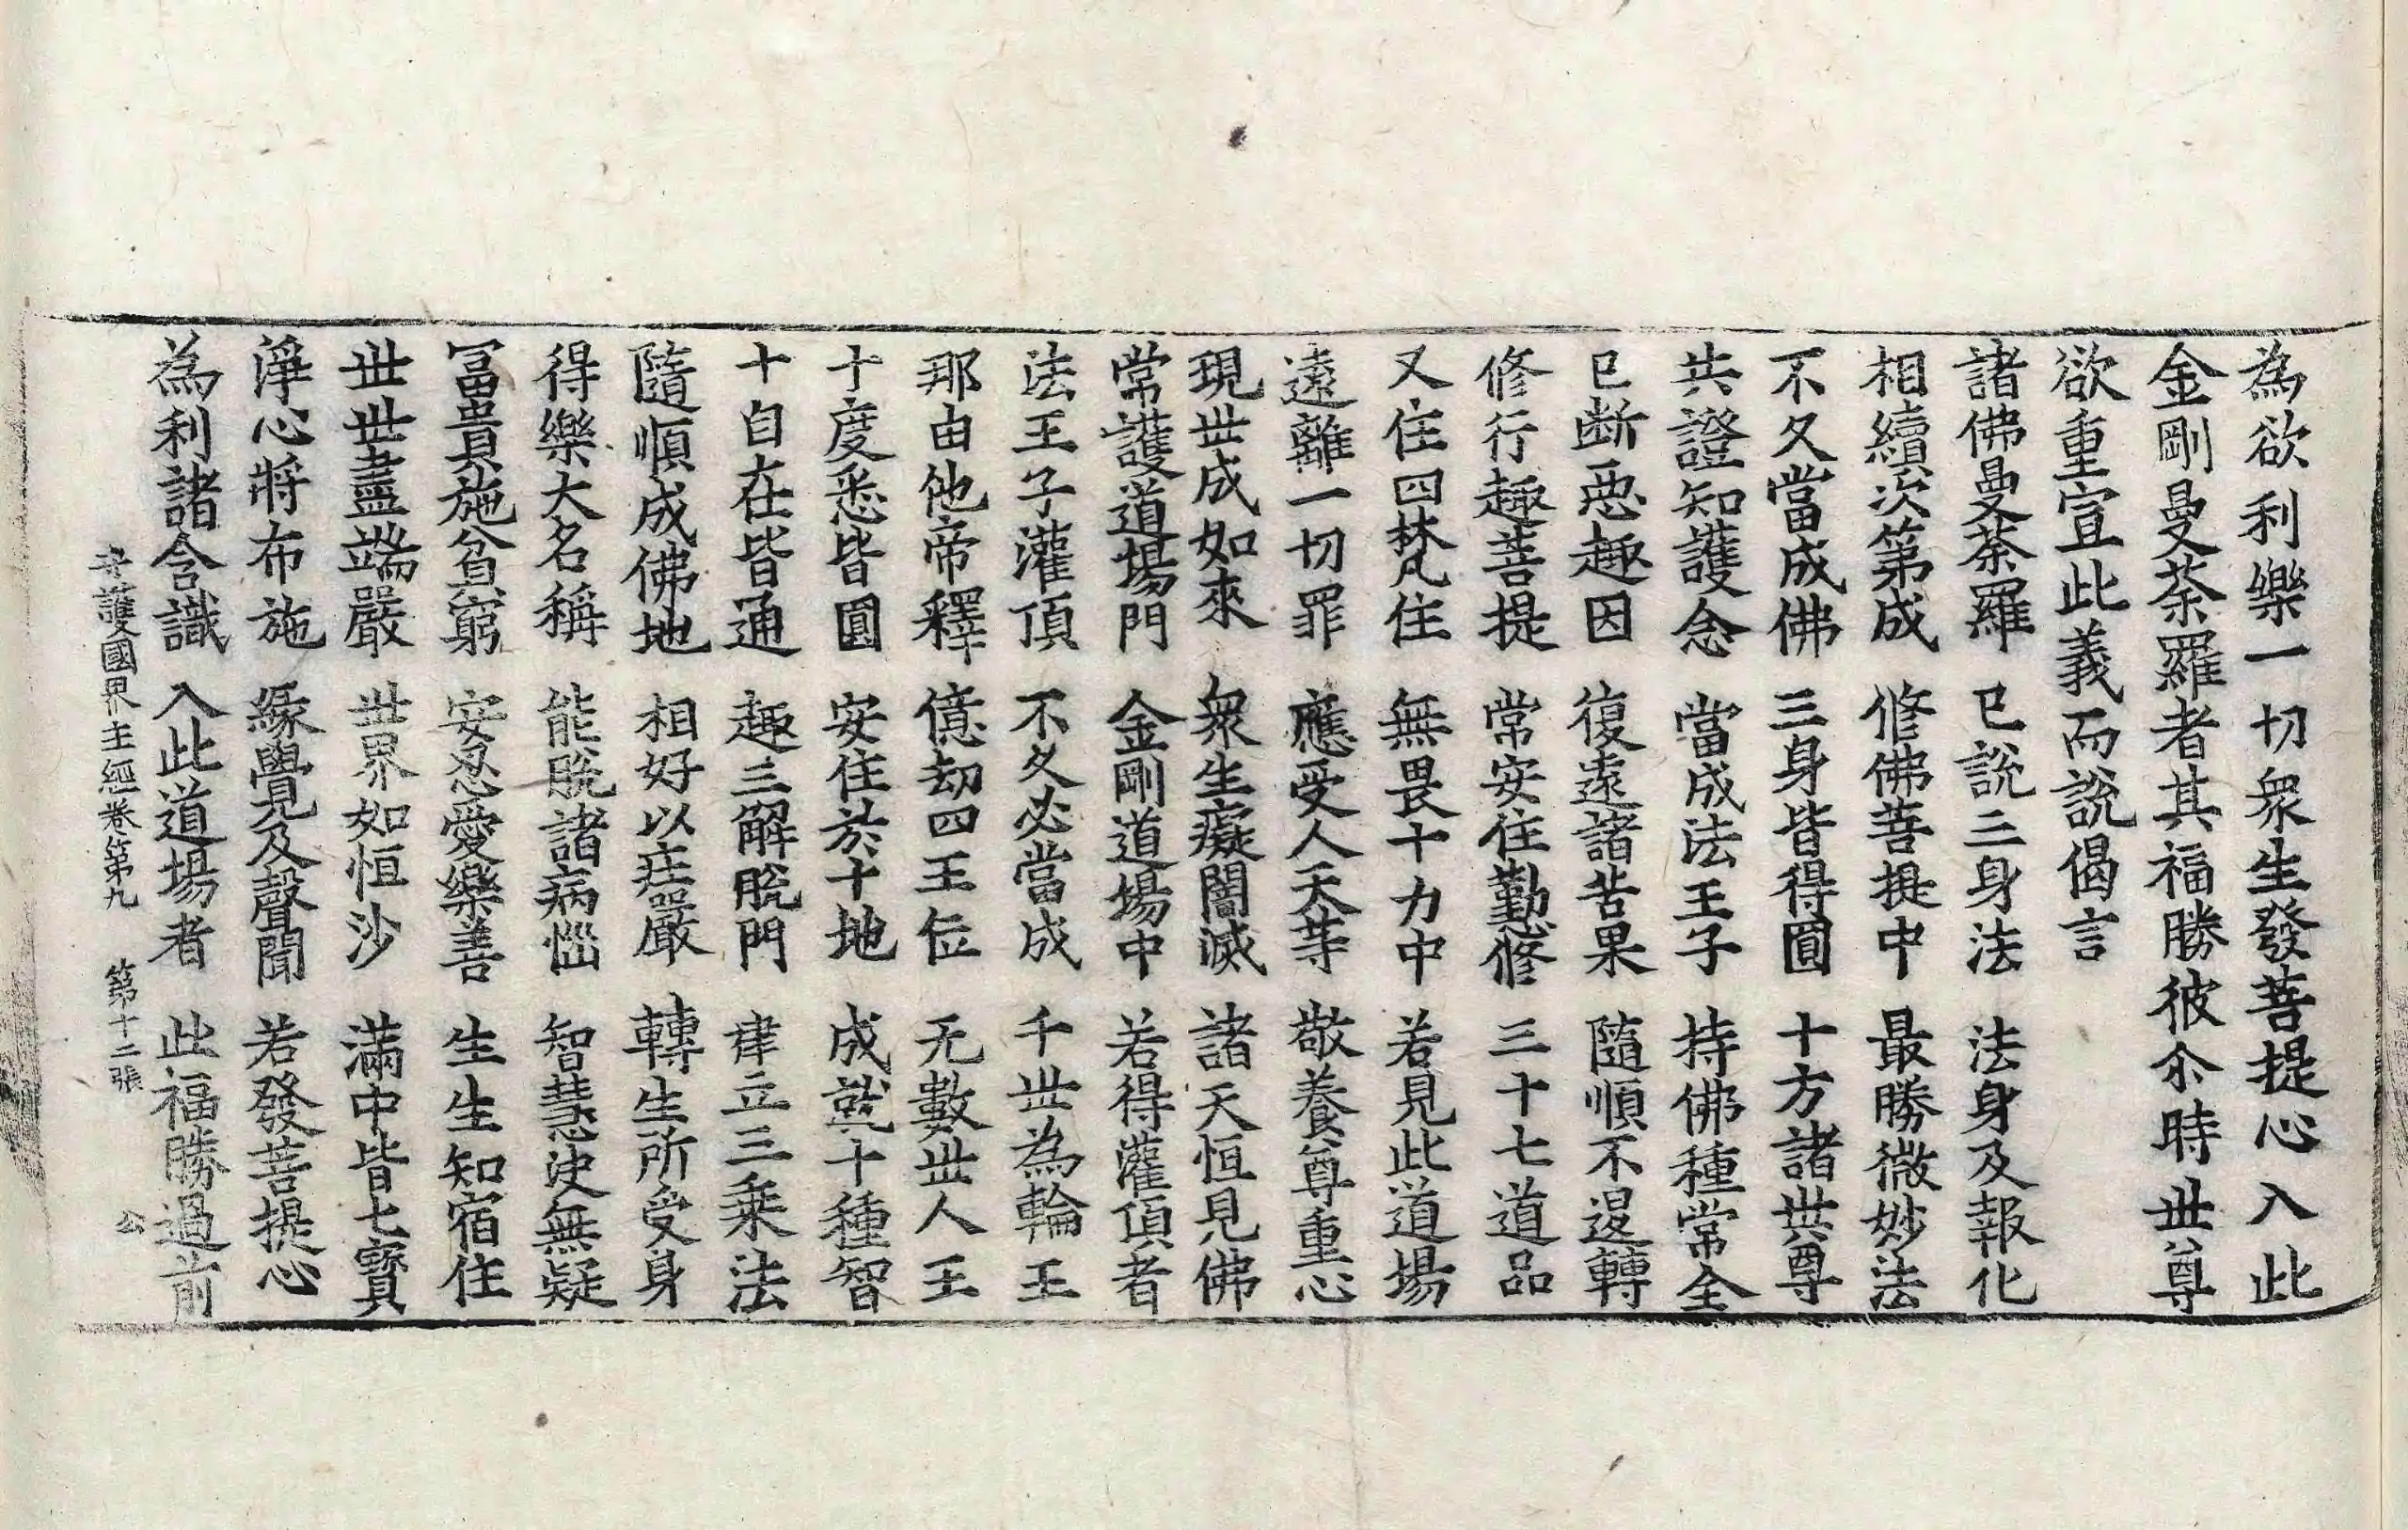 為欲利樂一切衆生發菩提心入此
金剛曼荼羅者其福勝彼尒時世尊
欲重宣此義而說偈言
諸佛曼荼羅 已說三身法 法身及報化
相續次第成 修佛菩提中 最勝微妙法
不久當成佛 三身皆得圓 十方諸世尊
共證知護念 當成法王子 持佛種常全
已斷惡趣因 復遠諸苦果 隨順不退轉
修行趣菩提 常安住勤修 三十七道品
又住四梵住 無畏十力中 若見此道場
遠離一切罪 應受人天等 敬養尊重心
現世成如來 衆生癡闇滅 諸天恒見佛
常護道場門 金剛道場中 若得灌頂者
法王子灌頂 不久必當成 千世為輪王
那由他帝釋 億劫四王位 无數世人王
十度悉皆圓 安住於十地 成就十種智
十自在皆通 趣三解脫門 肂立三乘法
隨順成佛地 相好以莊嚴 轉生所受身
得樂大名稱 能脫諸病惱 智慧決無疑
冨貴施貧窮 安忍愛樂善 生生知宿住
世世盡端嚴 世界如恒沙 滿中皆七寶
淨心將布施 緣覺及聲聞 若發菩提心
為利諸含識 入此道場者 此福勝過前
守護國界主經卷第九 第十二張 公